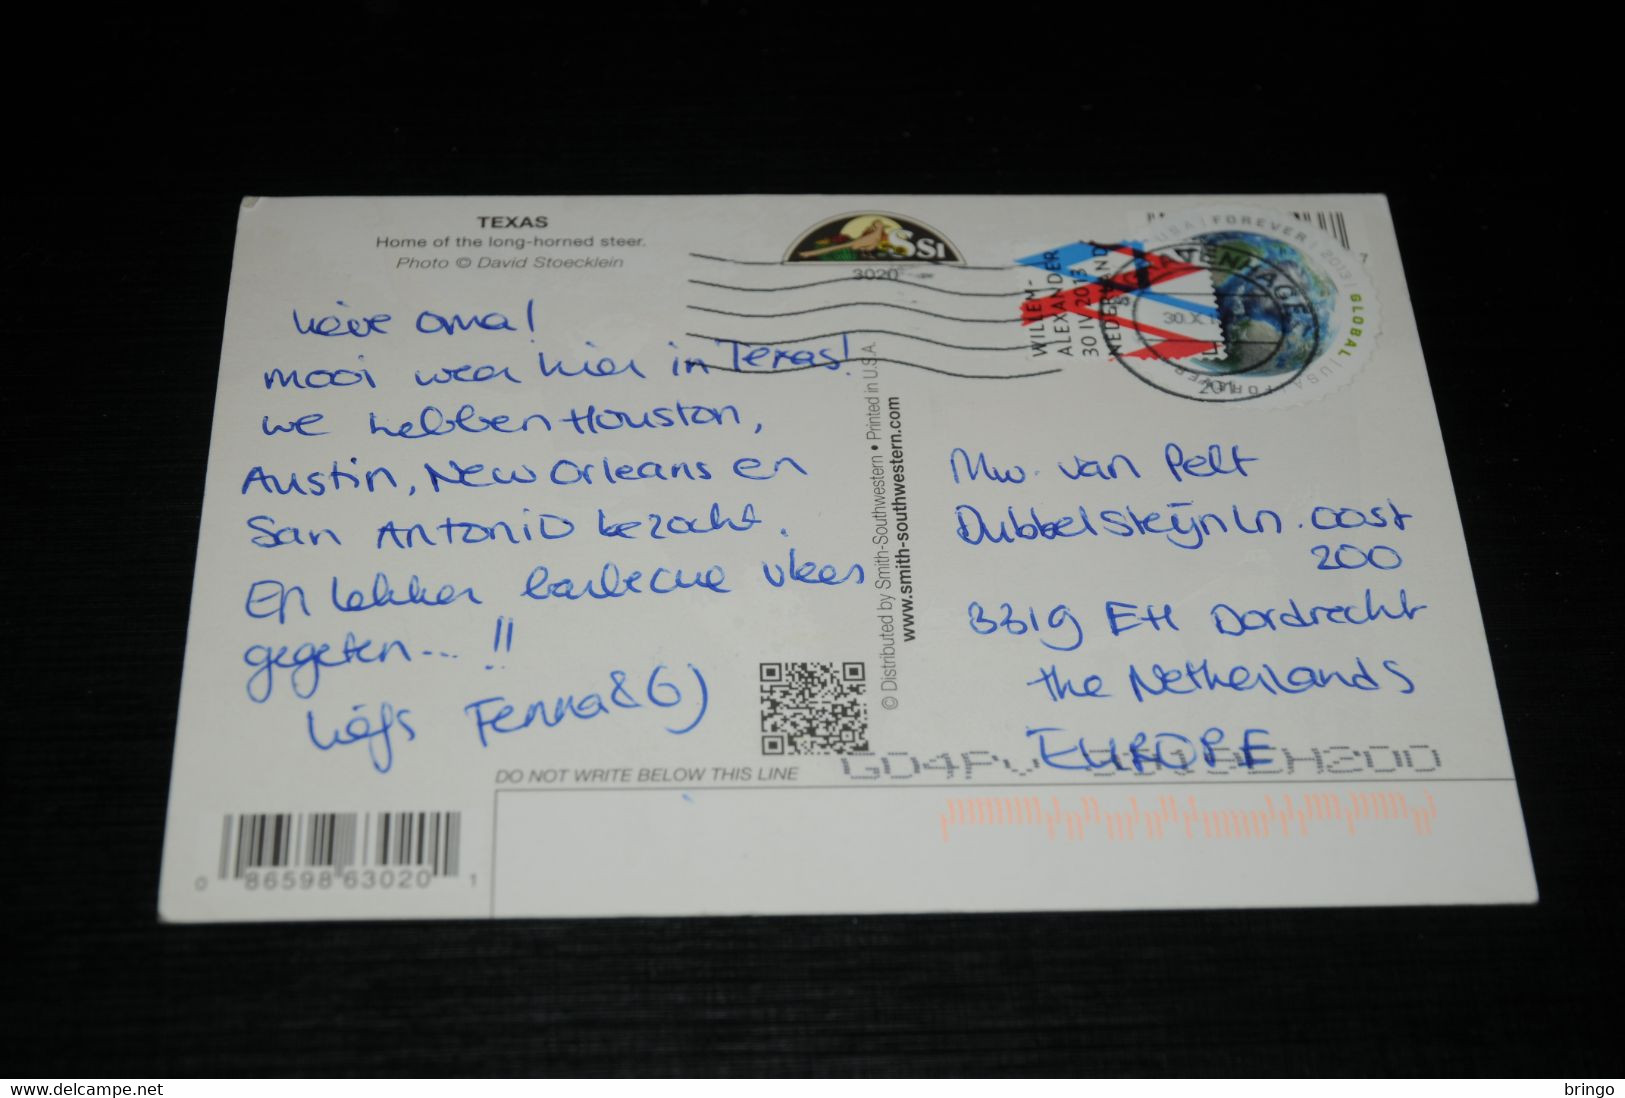 TEXAS
Home of the long-horned steer.
Photo © David Stoecklein
SSI
3020
lieve oma!
mooi weer hier in Texas!
we hebben Houston,
Austin, New Orleans en
San Antonio bezocht.
En lekker barbecue vlees
gegeten... !!
liefs Fenna & GJ
© Distributed by Smith-Southwestern • Printed in U.S.A.
www.smith-southwestern.com
WILLEM-
ALEXANDER
30 IV 2013
NEDERLAND
USA | FOREVER | 2013 | GLOBAL | USA FOREVER
30.X.1
201
7
Mw. van Pelt
Dubbelsteijnln. oost
200
3319 EH Dordrecht
the Netherlands
EUROPE
DO NOT WRITE BELOW THIS LINE
0 86598 63020 1
www.delcampe.net
bringo